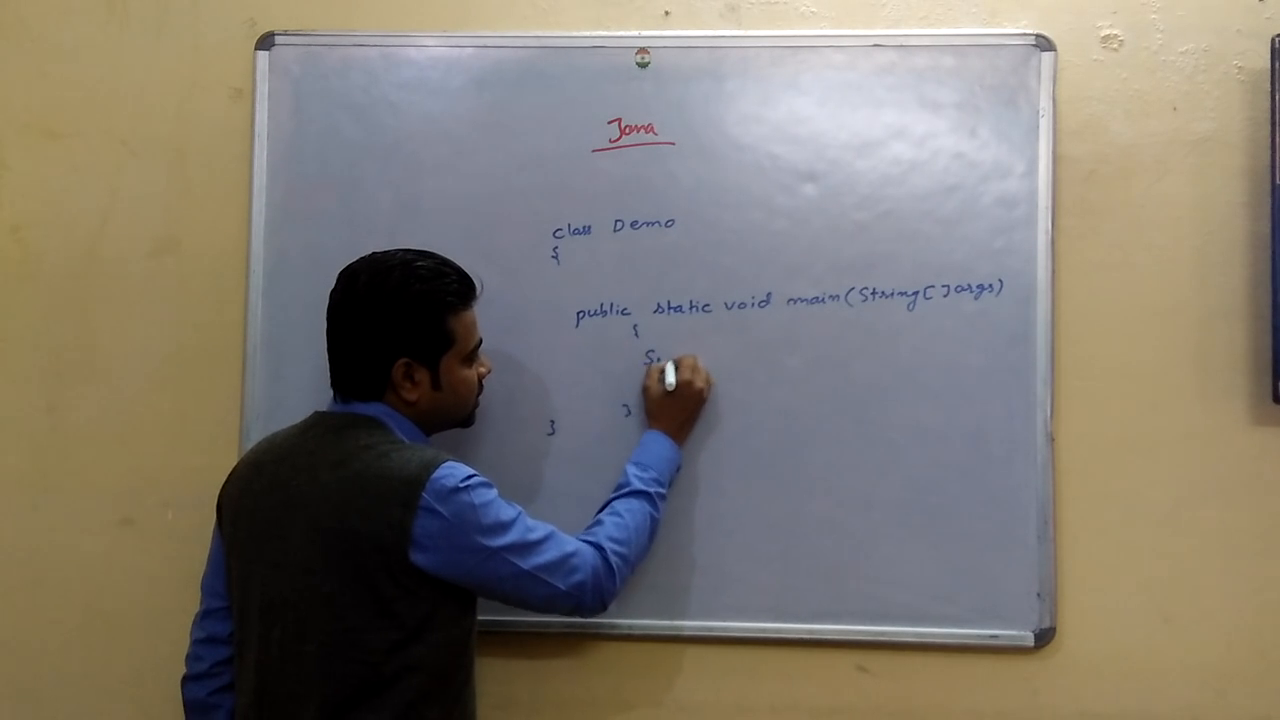 Java
class Demo
{
public static void main(String[] args)
{
S.
}
}